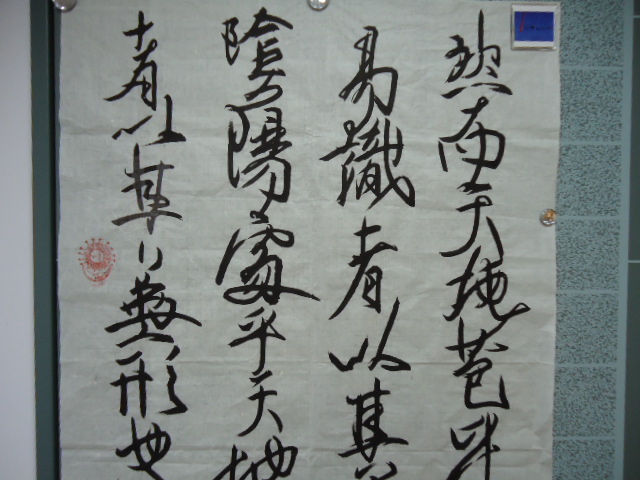 然而天地苞乎
易識者以其
陰陽處乎天地
者以其無形也